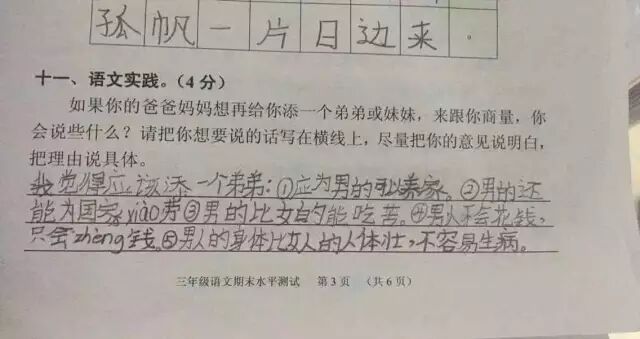 孤帆一片日边来。
十一、语文实践。（4分）
如果你的爸爸妈妈想再给你添一个弟弟或妹妹，来跟你商量，你
会说些什么？请把你想要说的话写在横线上，尽量把你的意见说明白，
把理由说具体。
我觉得应该添一个弟弟：①应为男的可以养家。②男的还
能为国家xiào劳③男的比女的能吃苦。④男人不会花钱，
只会zhèng钱。⑤男人的身体比女人的人体壮，不容易生病。
三年级语文期末水平测试 第3页 （共6页）